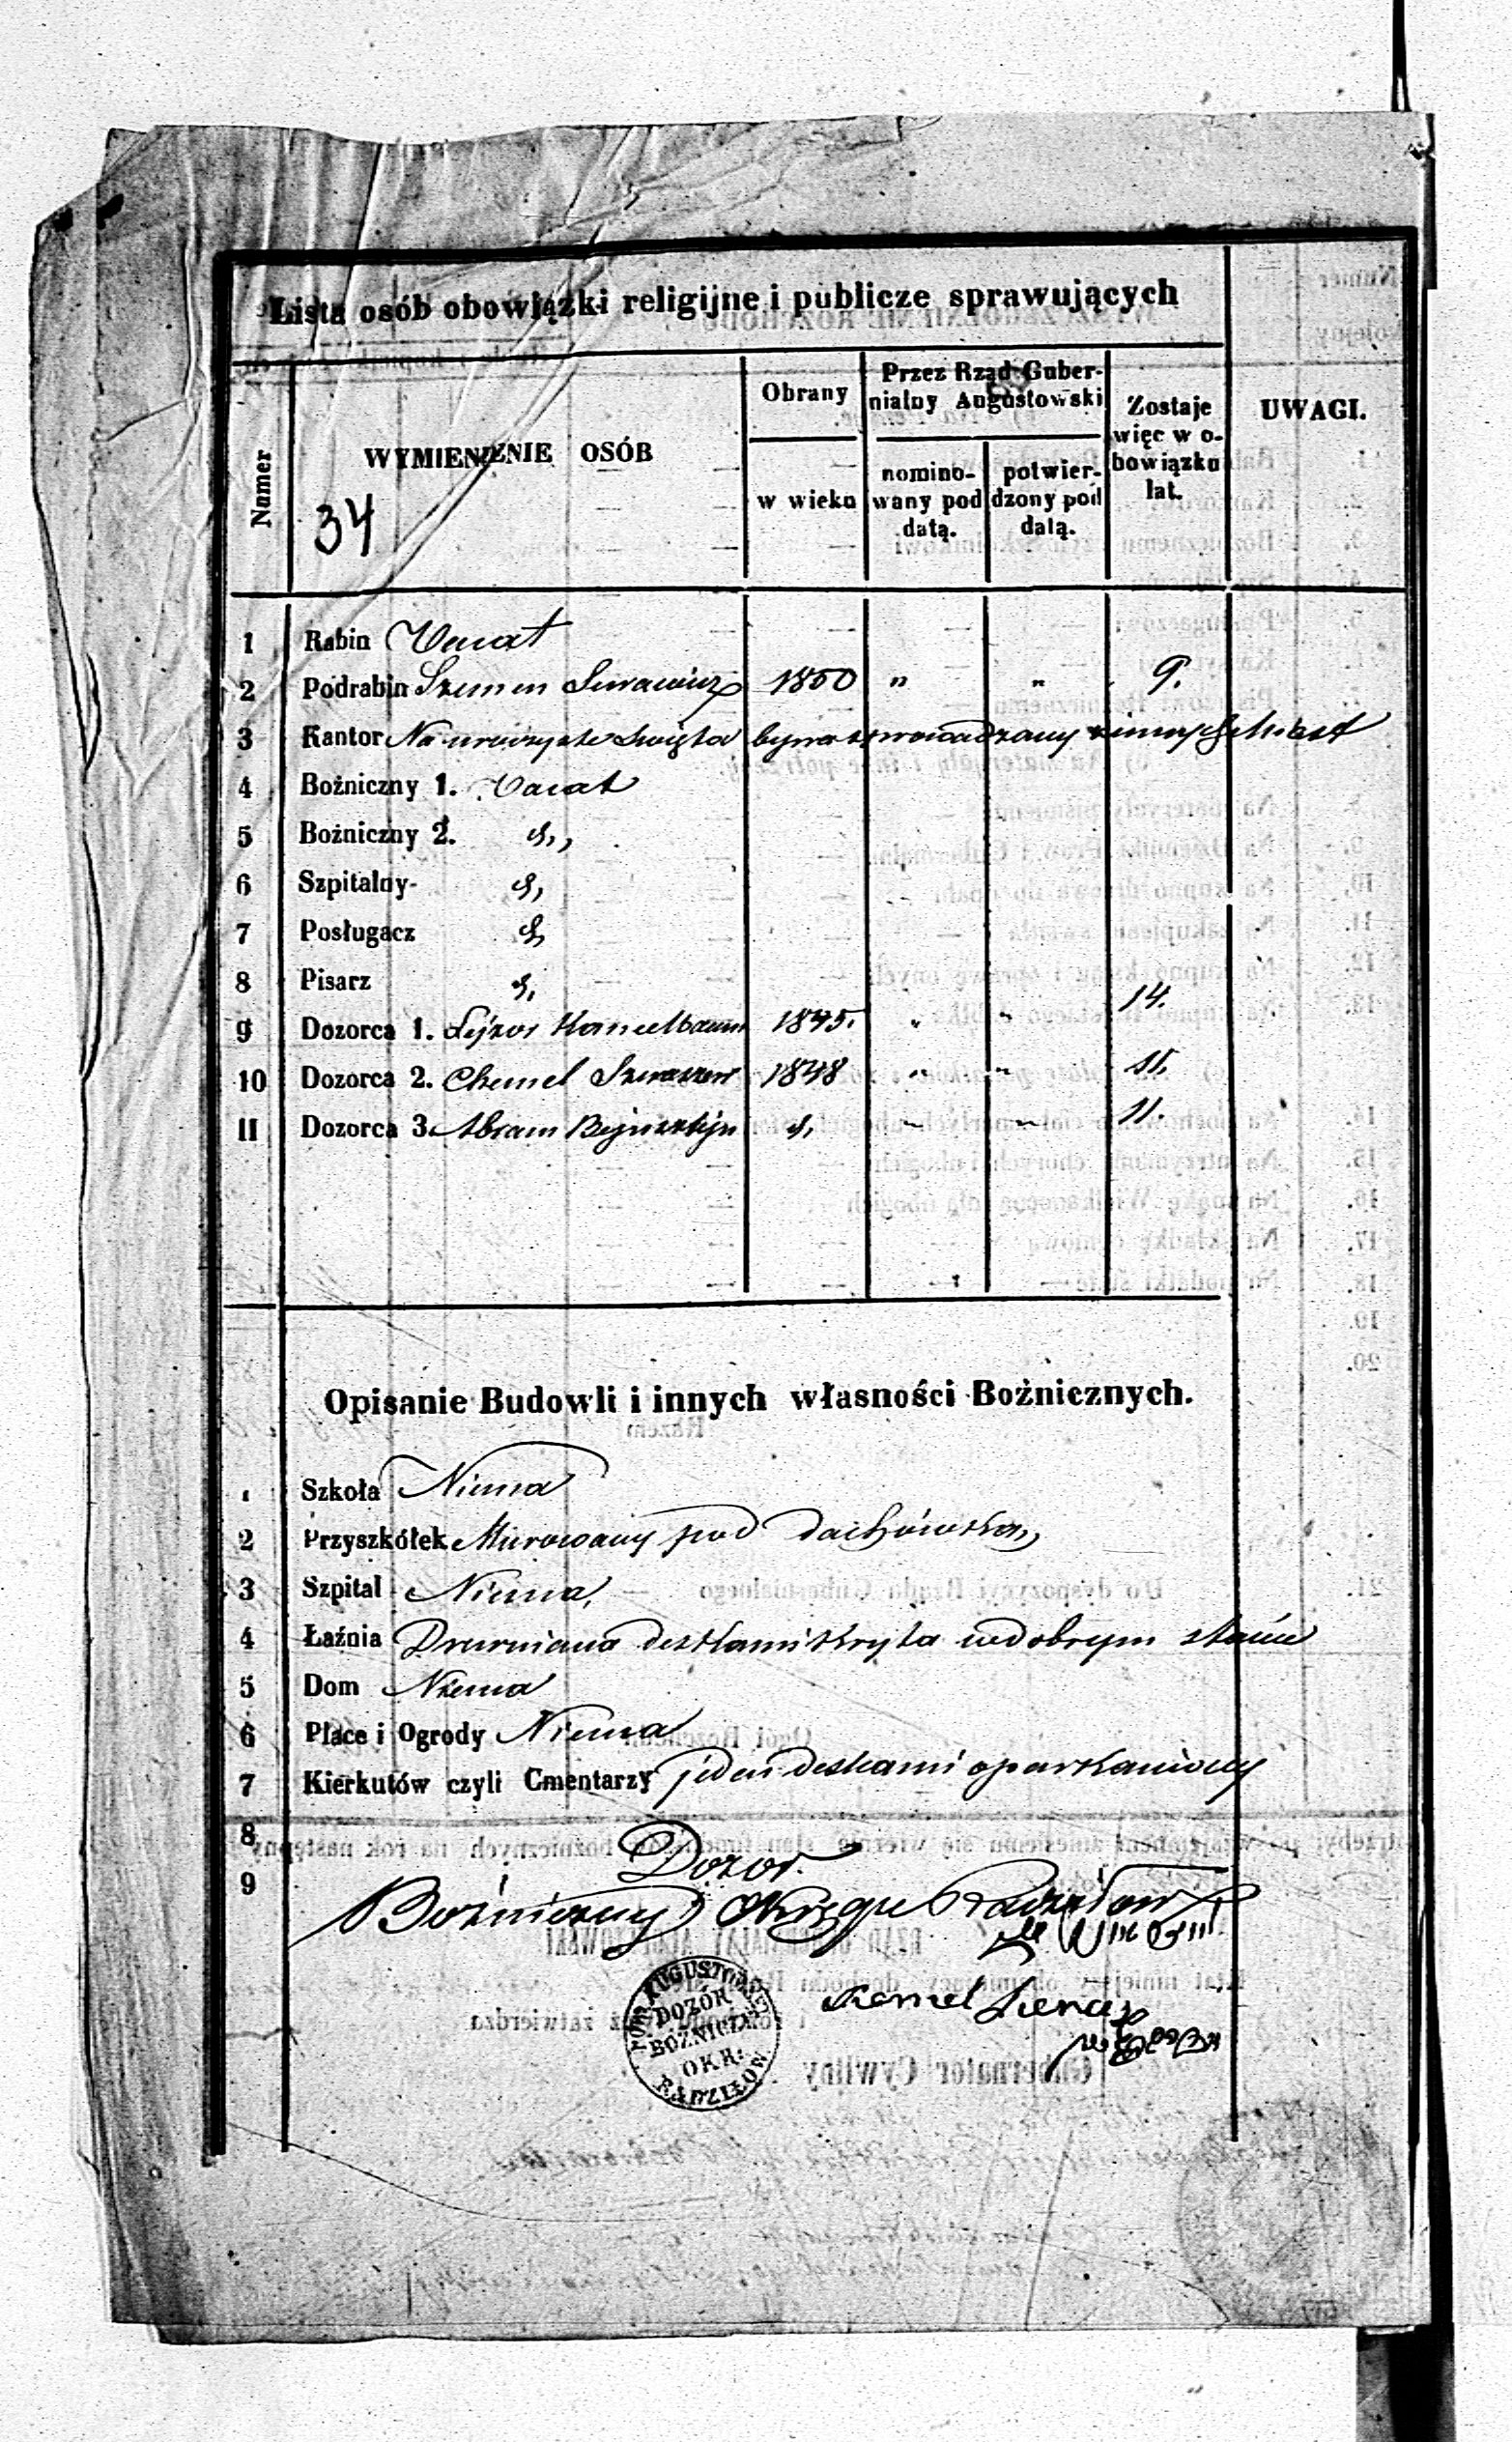 Lista osób obowiązki religijne i publicze sprawujących
Numer
WYMIENIENIE OSÓB
34
Obrany
w wieku
Przez Rząd Guber-
nialny Augustowski
nomino-
wany pod
datą.
potwier-
dzony pod
datą.
Zostaje
więc w o-
bowiązku
lat.
UWAGI.
1 Rabin Vacat
2 Podrabin 1850 " " 9.
3 Kantor Na uroczyste Święta bywa sprowadzany z innych Miast
4 Bożniczny 1. Vacat
5 Bożniczny 2.
6 Szpitalny
7 Posługacz
8 Pisarz
9 Dozorca 1. 1845. " " 14.
10 Dozorca 2. Chemel 1848 " " 11.
11 Dozorca 3. Abram " " 11.
Opisanie Budowli i innych własności Bożnicznych.
1 Szkoła Niema
2 Przyszkółek Murowany pod Dachówką
3 Szpital Niema,
4 Łaźnia Drewniana deskami kryta w dobrym stanie
5 Dom Niema
6 Place i Ogrody Niema
7 Kierkutów czyli Cmentarzy jeden deskami oparkaniony
8
Dozor
9
Bożniczny Okręgu Radziłow
DOZÓR
BÓŻNICZY
OKR:
RADZIŁÓW